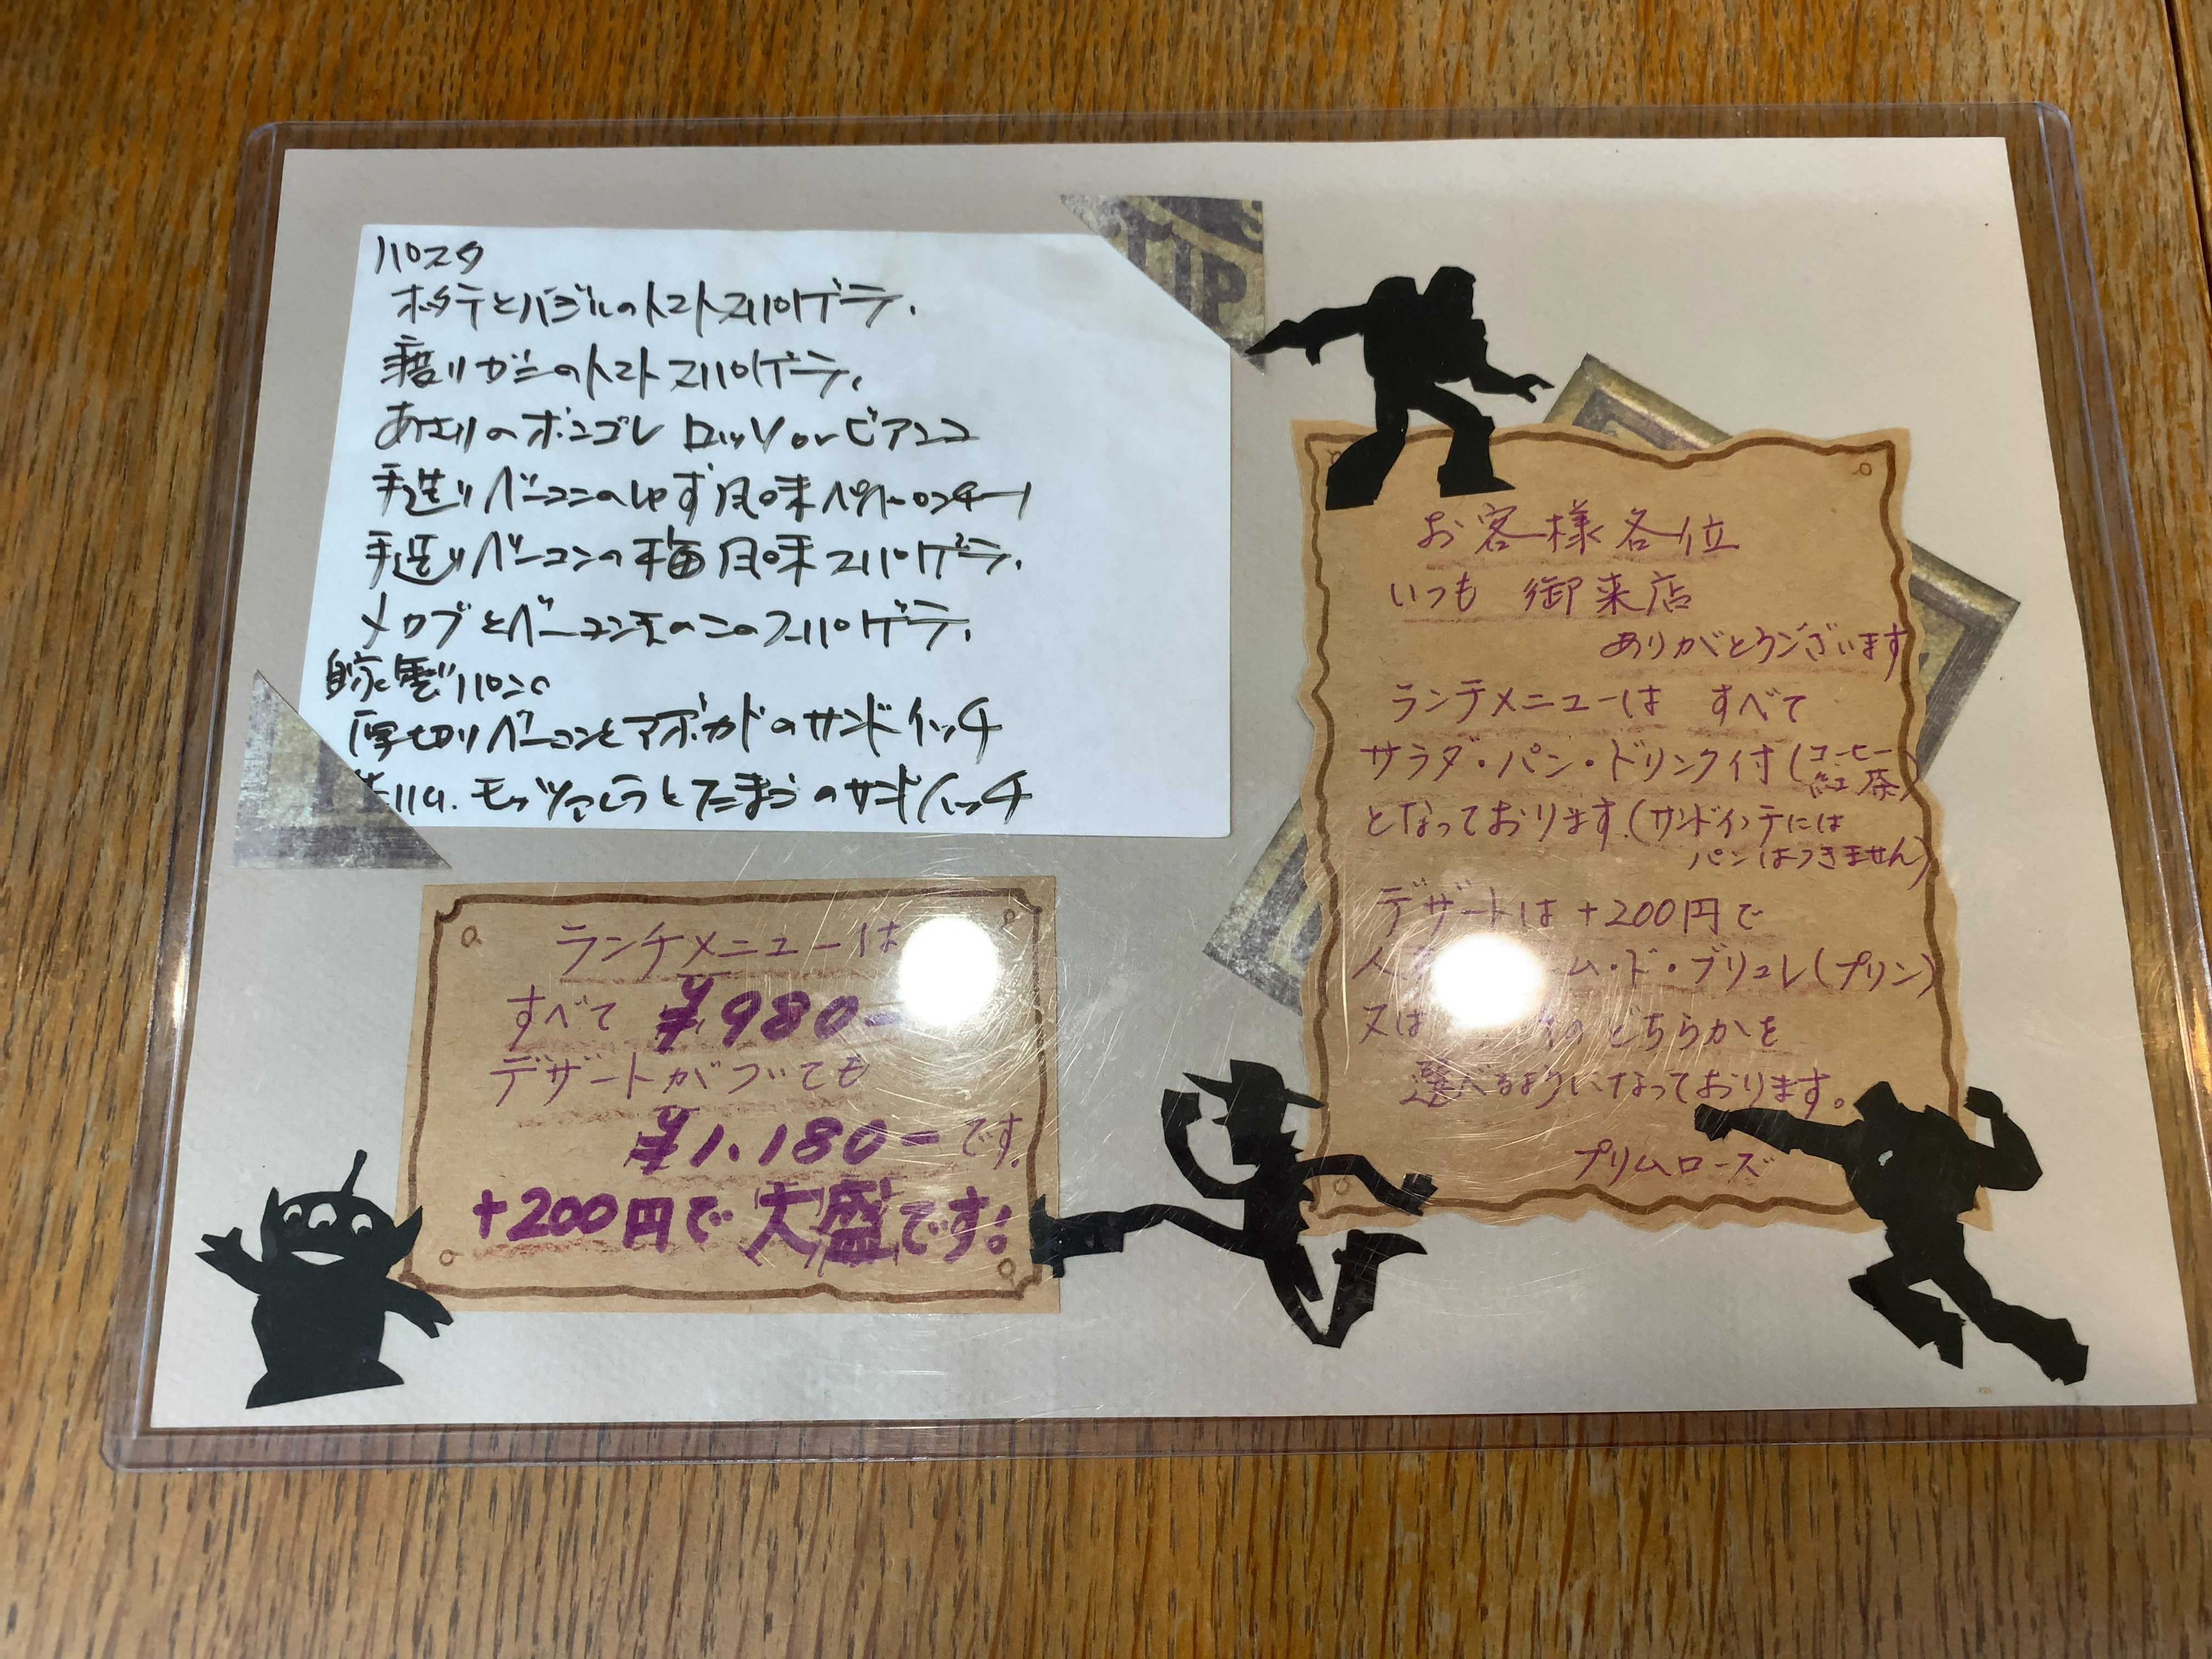 パスタ
ホタテとバジルのトマトスパゲテ.
渡りガニのトマトスパゲテ.
あさりのボンゴレ ロッソorビアンコ
手造りベーコンのゆず風味ペペロンチーノ
手造りベーコンの梅風味スパゲテ.
メロブとベーコンきのこのスパゲテ.
自家製パンの
厚切りベーコンとアボカドのサンドイッチ
モッツァレラとたまごのサンドイッチ
ランチメニューは
すべて ¥980-
デザートがついても
¥1,180-です.
+200円で大盛です!
UP
お客様各位
いつも 御来店
ありがとうございます
ランチメニューは すべて
サラダ・パン・ドリンク付(コーヒー
紅茶)
となっております.(サンドイッチには
パンはつきません)
デザートは+200円で
ム・ド・ブリュレ(プリン)
又は のどちらかを
選べるようになっております。
プリムローズ